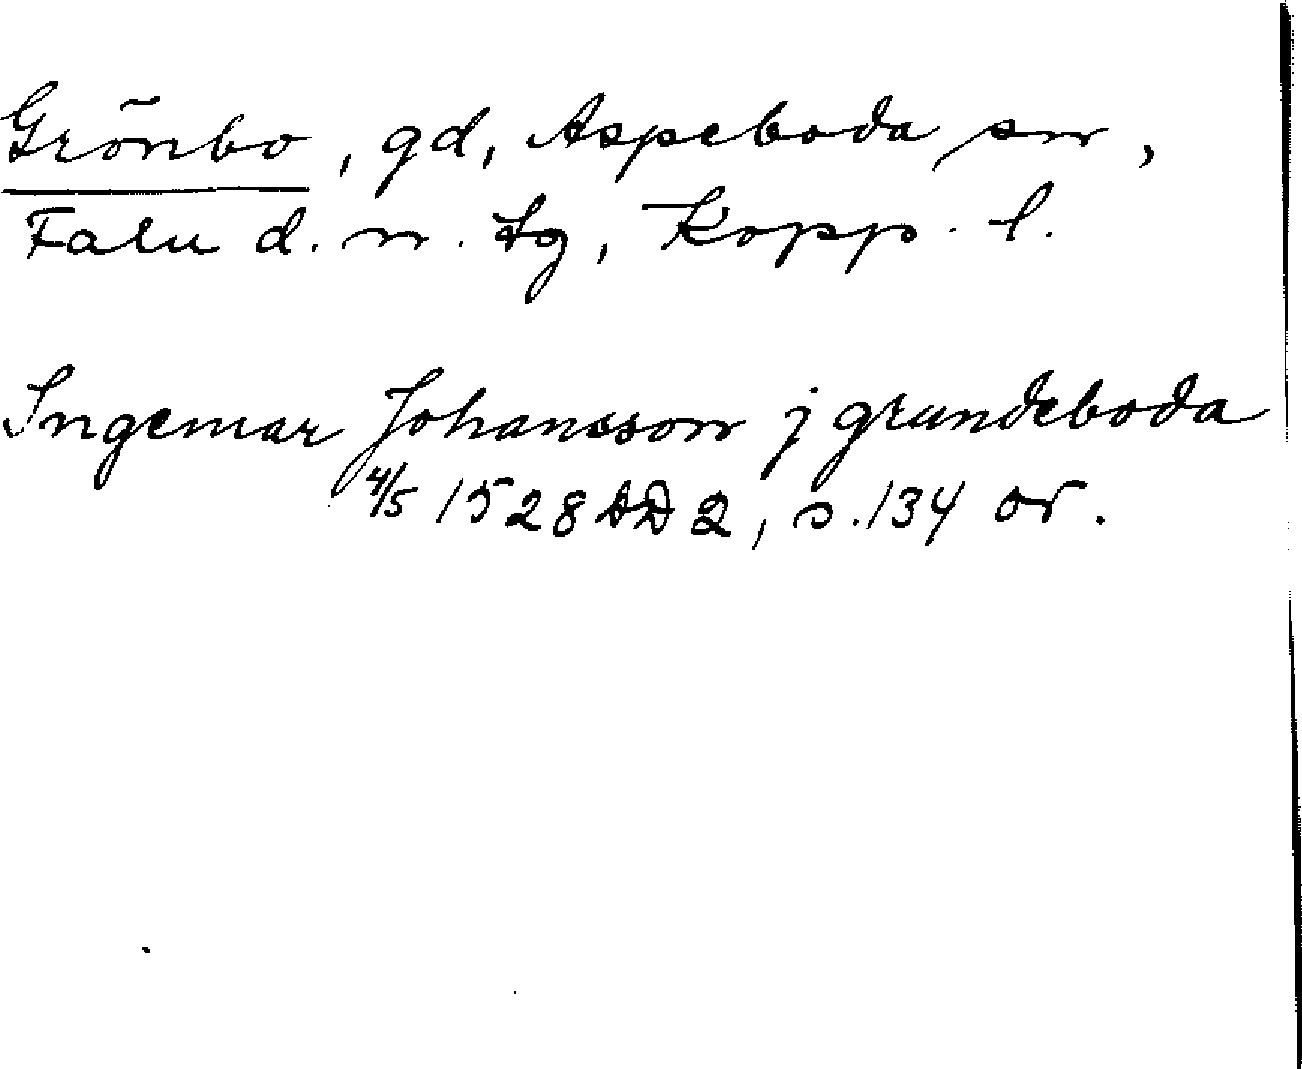 Grönbo, gd, Aspeboda sn,
Falu d. n. tg, Kopp. l.
Ingemar Johansson j grundeboda
4/5 1528 DD 2, s. 134 or.